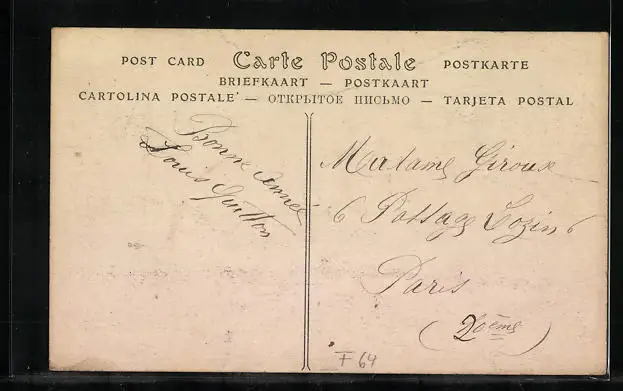 POST CARD Carte Postale POSTKARTE
BRIEFKAART — POSTKAART
CARTOLINA POSTALE — ОТКРЫТОЕ ПИСЬМО — TARJETA POSTAL
Bonne Année
Louis Guitton
Madame Giroux
6 Passage Lozin 6
Paris
(20ème)
F 64